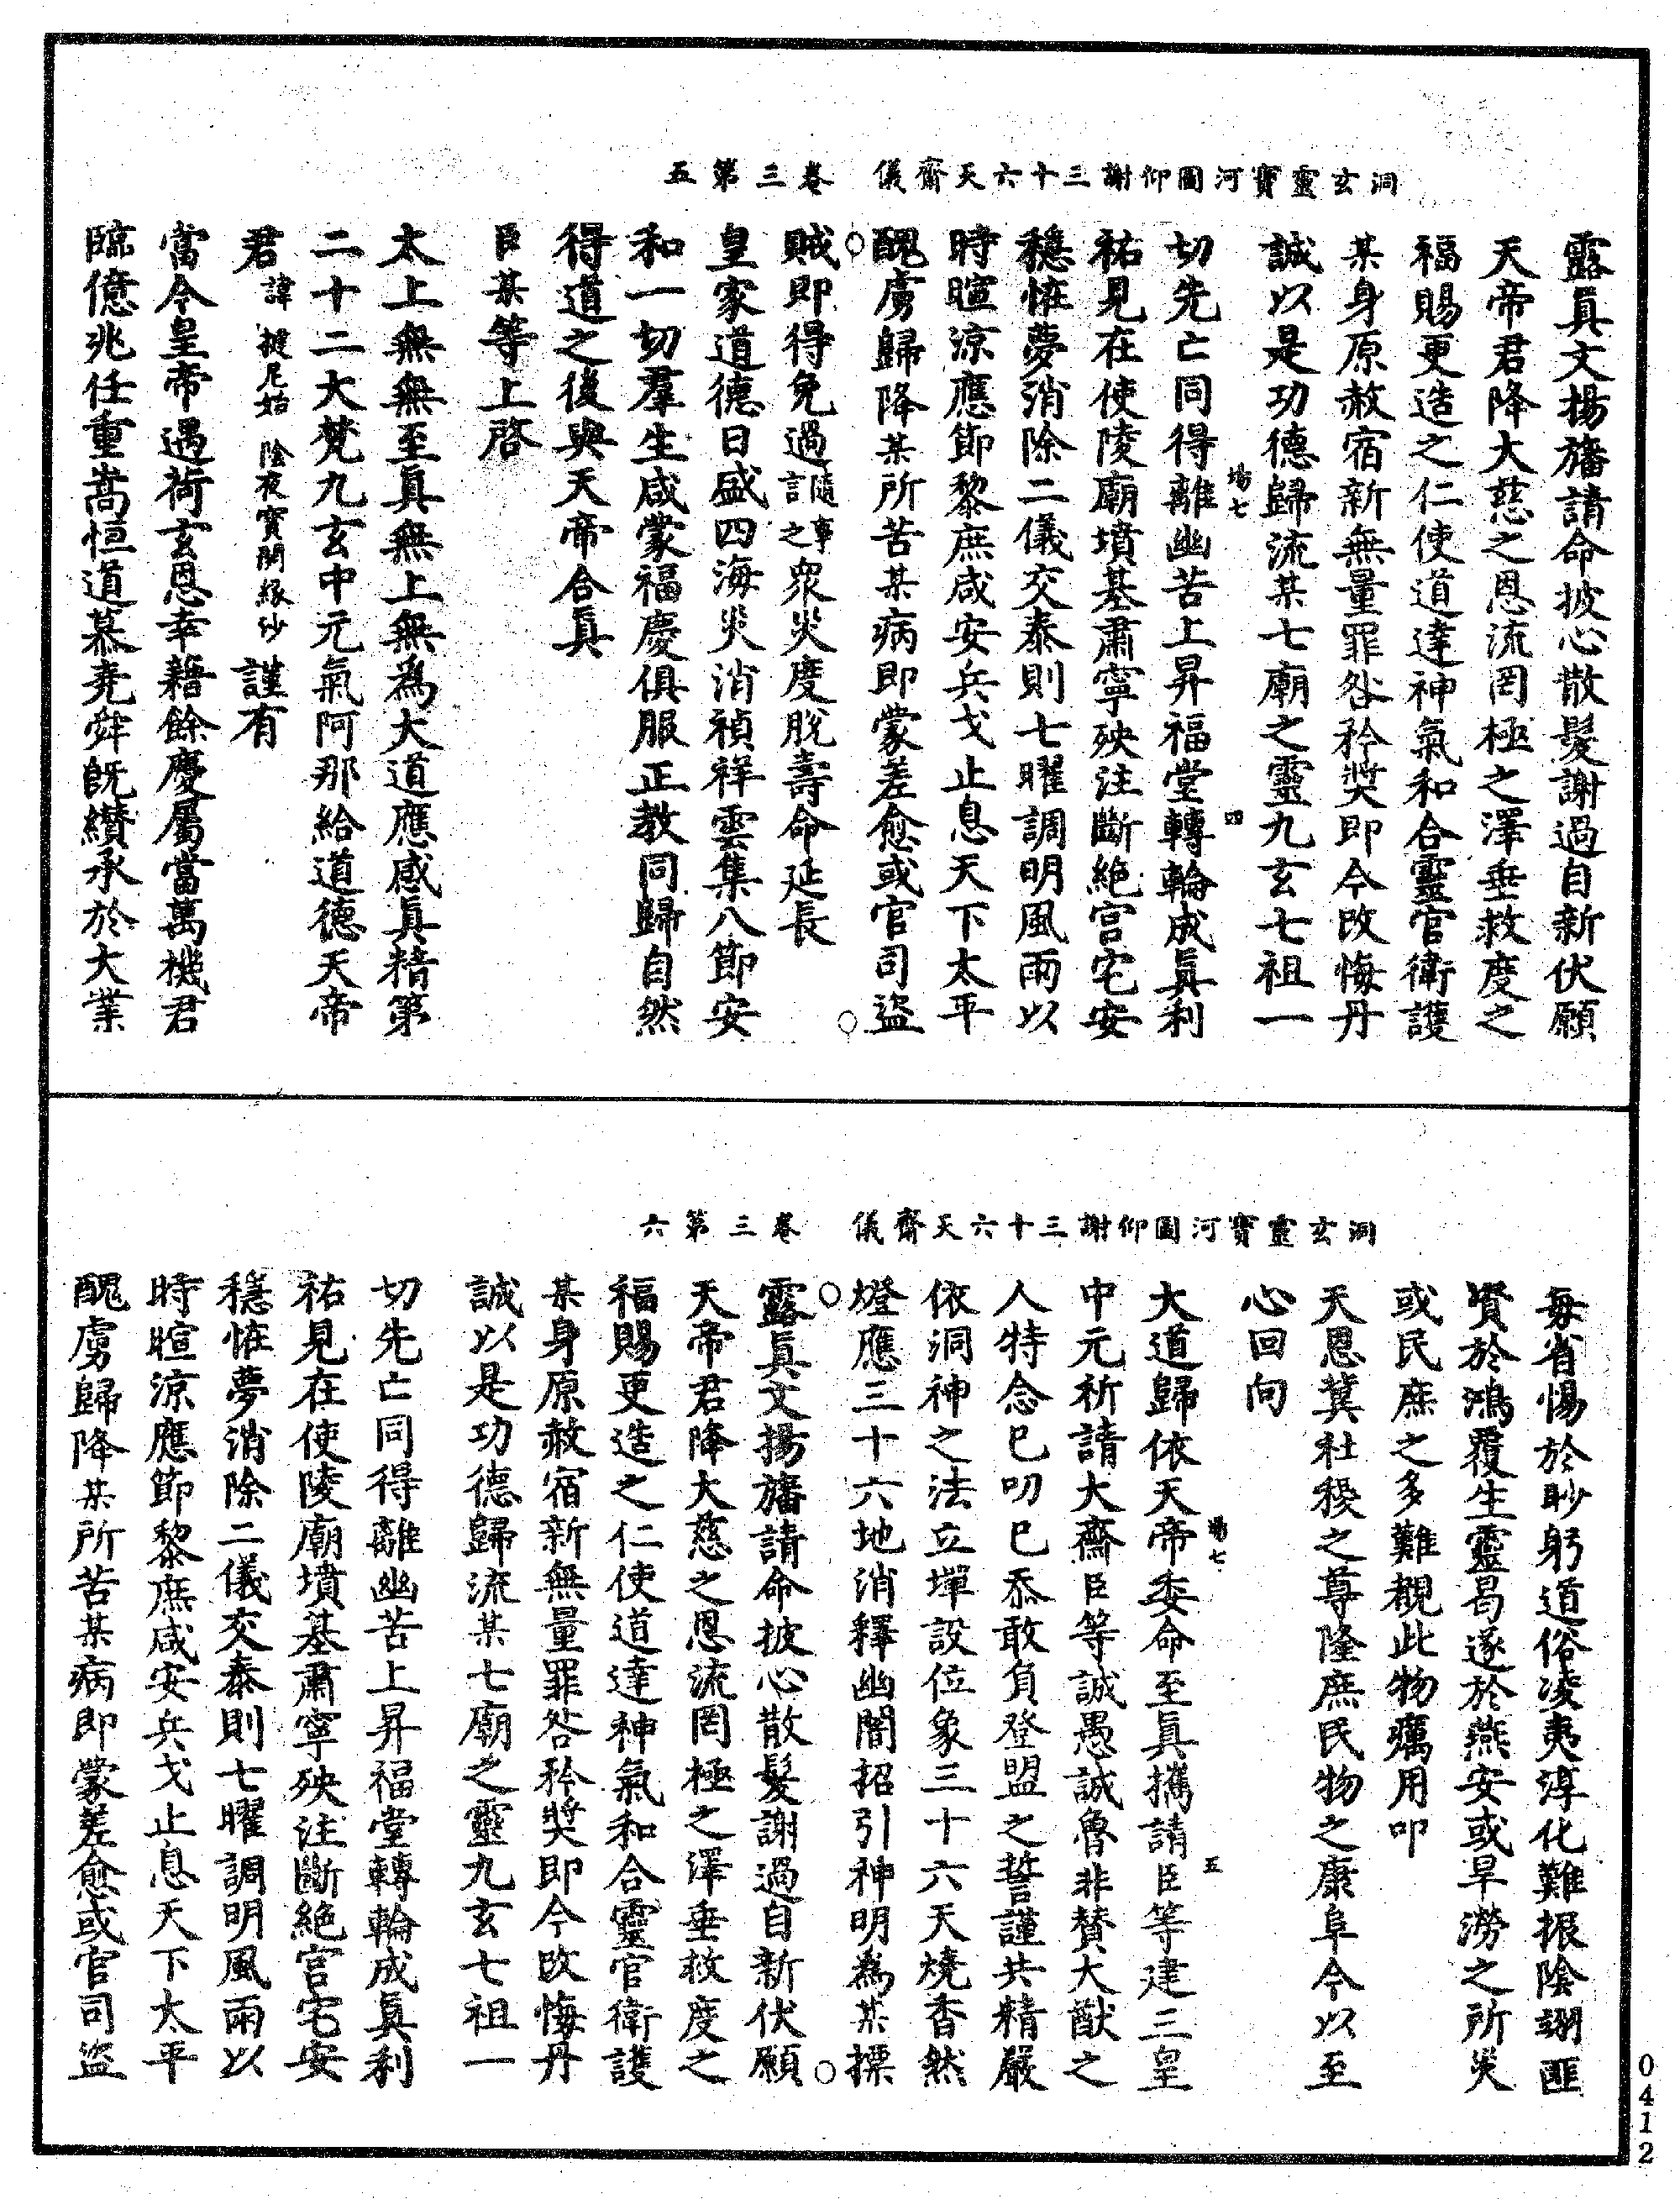 洞玄靈寶河圖仰謝三十六天齋儀　卷三第五
露眞文揚旛請命披心散髮謝過自新伏願
天帝君降大慈之恩流罔極之澤垂救度之
福賜更造之仁使道達神氣和合靈官衛護
某身原赦宿新無量罪咎矜奬即今改悔丹
誠以是功德歸流某七廟之靈九玄七祖一
場七　四
切先亡同得離幽苦上昇福堂轉輪成眞利
祐見在使陵廟墳基肅寧殃注斷絕宮宅安
穩恠夢消除二儀交泰則七曜調明風雨以
時暄涼應節黎庶咸安兵戈止息天下太平
醜虜歸降某所苦某病即蒙差愈或官司盜
賊即得免過隨事言之衆災度脫壽命延長
皇家道德日盛四海災消禎祥雲集八節安
和一切羣生咸蒙福慶俱服正教同歸自然
得道之後與天帝合眞
臣某等上啓
太上無無至眞無上無爲大道應感眞精第
二十二大梵九玄中元氣阿那給道德天帝
君諱揵尼始陰夜寶開緣沙謹有
當今皇帝遇荷玄恩幸藉餘慶屬當萬機君
臨億兆任重嵩恒道慕堯舜旣纘承於大業
洞玄靈寶河圖仰謝三十六天齋儀　卷三第六
每省惕於眇躬道俗凌夷淳化難振陰翊匪
賢於鴻覆生靈曷遂於燕安或旱澇之所災
或民庶之多難覩此物癘用叩
天恩冀社稷之尊隆庶民物之康阜今以至
心回向
場七　五
大道歸依天帝委命至眞攜請臣等建三皇
中元祈請大齋臣等誠愚誠魯非贊大猷之
人特念已叨已忝敢負登盟之誓謹共精嚴
依洞神之法立墠設位象三十六天燒香然
燈應三十六地消釋幽闇招引神明爲某摽
露眞文揚旛請命披心散髮謝過自新伏願
天帝君降大慈之恩流罔極之澤垂救度之
福賜更造之仁使道達神氣和合靈官衛護
某身原赦宿新無量罪咎矜奬即今改悔丹
誠以是功德歸流某七廟之靈九玄七祖一
切先亡同得離幽苦上昇福堂轉輪成眞利
祐見在使陵廟墳基肅寧殃注斷絕宮宅安
穩恠夢消除二儀交泰則七曜調明風雨以
時暄涼應節黎庶咸安兵戈止息天下太平
醜虜歸降某所苦某病即蒙差愈或官司盜
0412